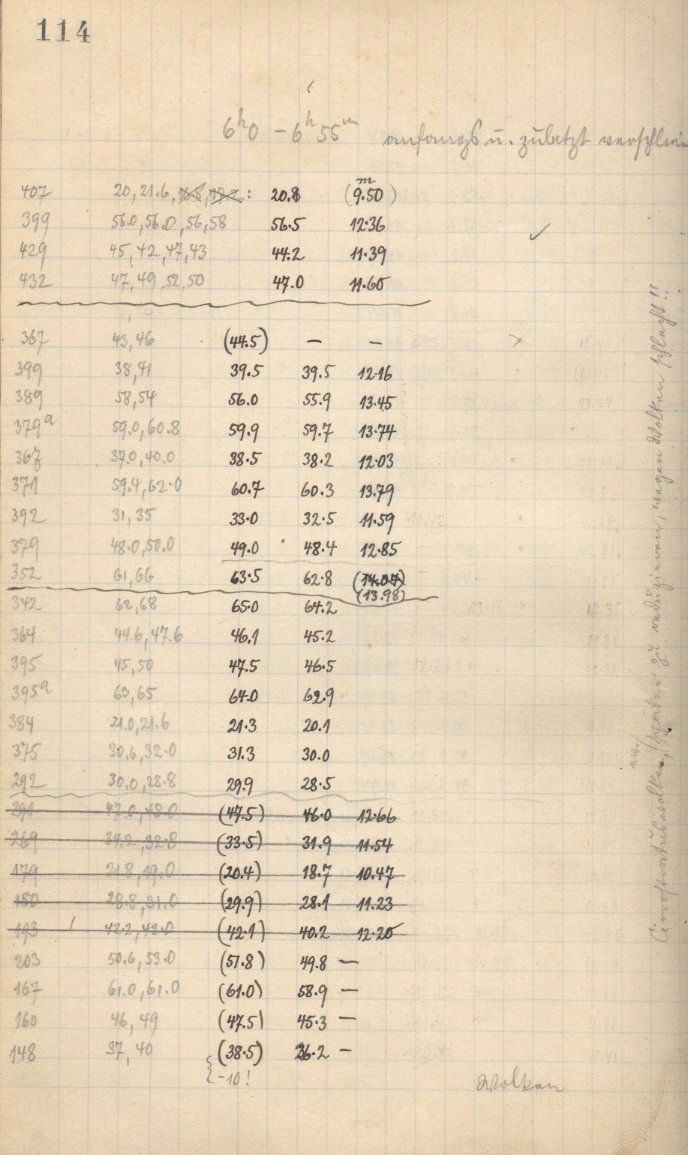 114
6ʰ0 – 6ʰ55ᵐ anfangs u. zuletzt
407 20, 21.6, : 20.8 (9.50)ᵐ
399 56.0, 56.0, 56, 58 56.5 12.36
429 45, 42, 47, 43 44.2 11.39
432 47, 49, 52, 50 47.0 11.60
367 43, 46 (44.5) – –
399 38, 41 39.5 39.5 12.16
389 58, 54 56.0 55.9 13.45
379a 59.0, 60.8 59.9 59.7 13.74
367 37.0, 40.0 38.5 38.2 12.03
371 59.4, 62.0 60.7 60.3 13.79
392 31, 35 33.0 32.5 11.59
379 48.0, 50.0 49.0 48.4 12.85
352 61, 66 63.5 62.8 (14.07)
(13.98)
342 62, 68 65.0 64.2
364 44.6, 47.6 46.1 45.2
395 45, 50 47.5 46.5
395a 63, 65 64.0 62.9
384 21.0, 21.6 21.3 20.1
375 30.6, 32.0 31.3 30.0
292 30.0, 28.8 29.9 28.5
291 47.0, 48.0 (47.5) 46.0 12.66
269 34.2, 32.8 (33.5) 31.9 11.54
179 21.8, 19.0 (20.4) 18.7 10.47
180 28.8, 31.0 (29.9) 28.1 11.23
193 42.2, 42.0 (42.1) 40.2 12.25
203 50.6, 53.0 (51.8) 49.8 –
167 61.0, 61.0 (61.0) 58.9 –
160 46, 49 (47.5) 45.3 –
148 37, 40 (38.5) 36.2 –
{-10!
Wolken
später zu reduzieren, wegen Wolken schlecht!!